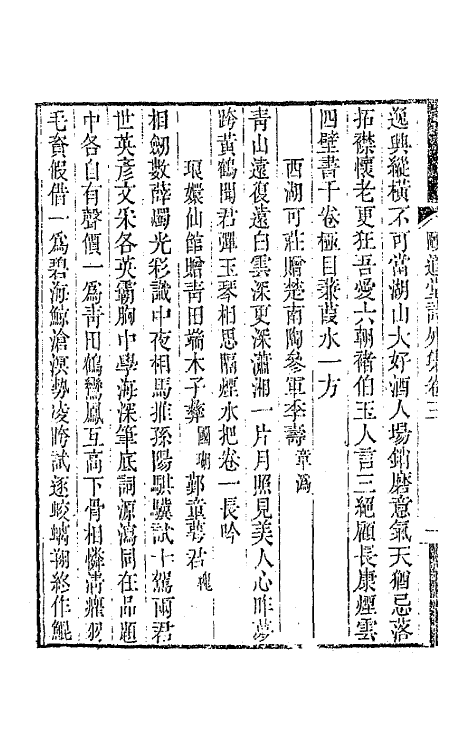 頤道堂詩外集卷三
一
逸興縱橫不可當湖山大好酒人場銷磨意氣天猶忌落
拓襟懷老更狂吾愛六朝褚伯玉人言三絕顧長康煙雲
四壁書千卷極目蒹葭水一方
西湖可莊贈楚南陶參軍季壽章溈
青山遠復遠白雲深更深瀟湘一片月照見美人心昨夢
跨黃鶴聞君彈玉琴相思隔煙水把卷一長吟
琅嬛仙館贈青田端木子彝國瑚鄞童萼君槐
相劒數薛燭光彩識中夜相馬推孫陽騏驥試十駕兩君
世英彥文采各英霸胸中學海深筆底詞源瀉同在品題
中各自有聲價一爲靑田鶴鸞鳳互高下骨相憐淸癯羽
毛奮假借一爲碧海鯨滄溟勢凌跨試逐蛟螭翔終作鯤